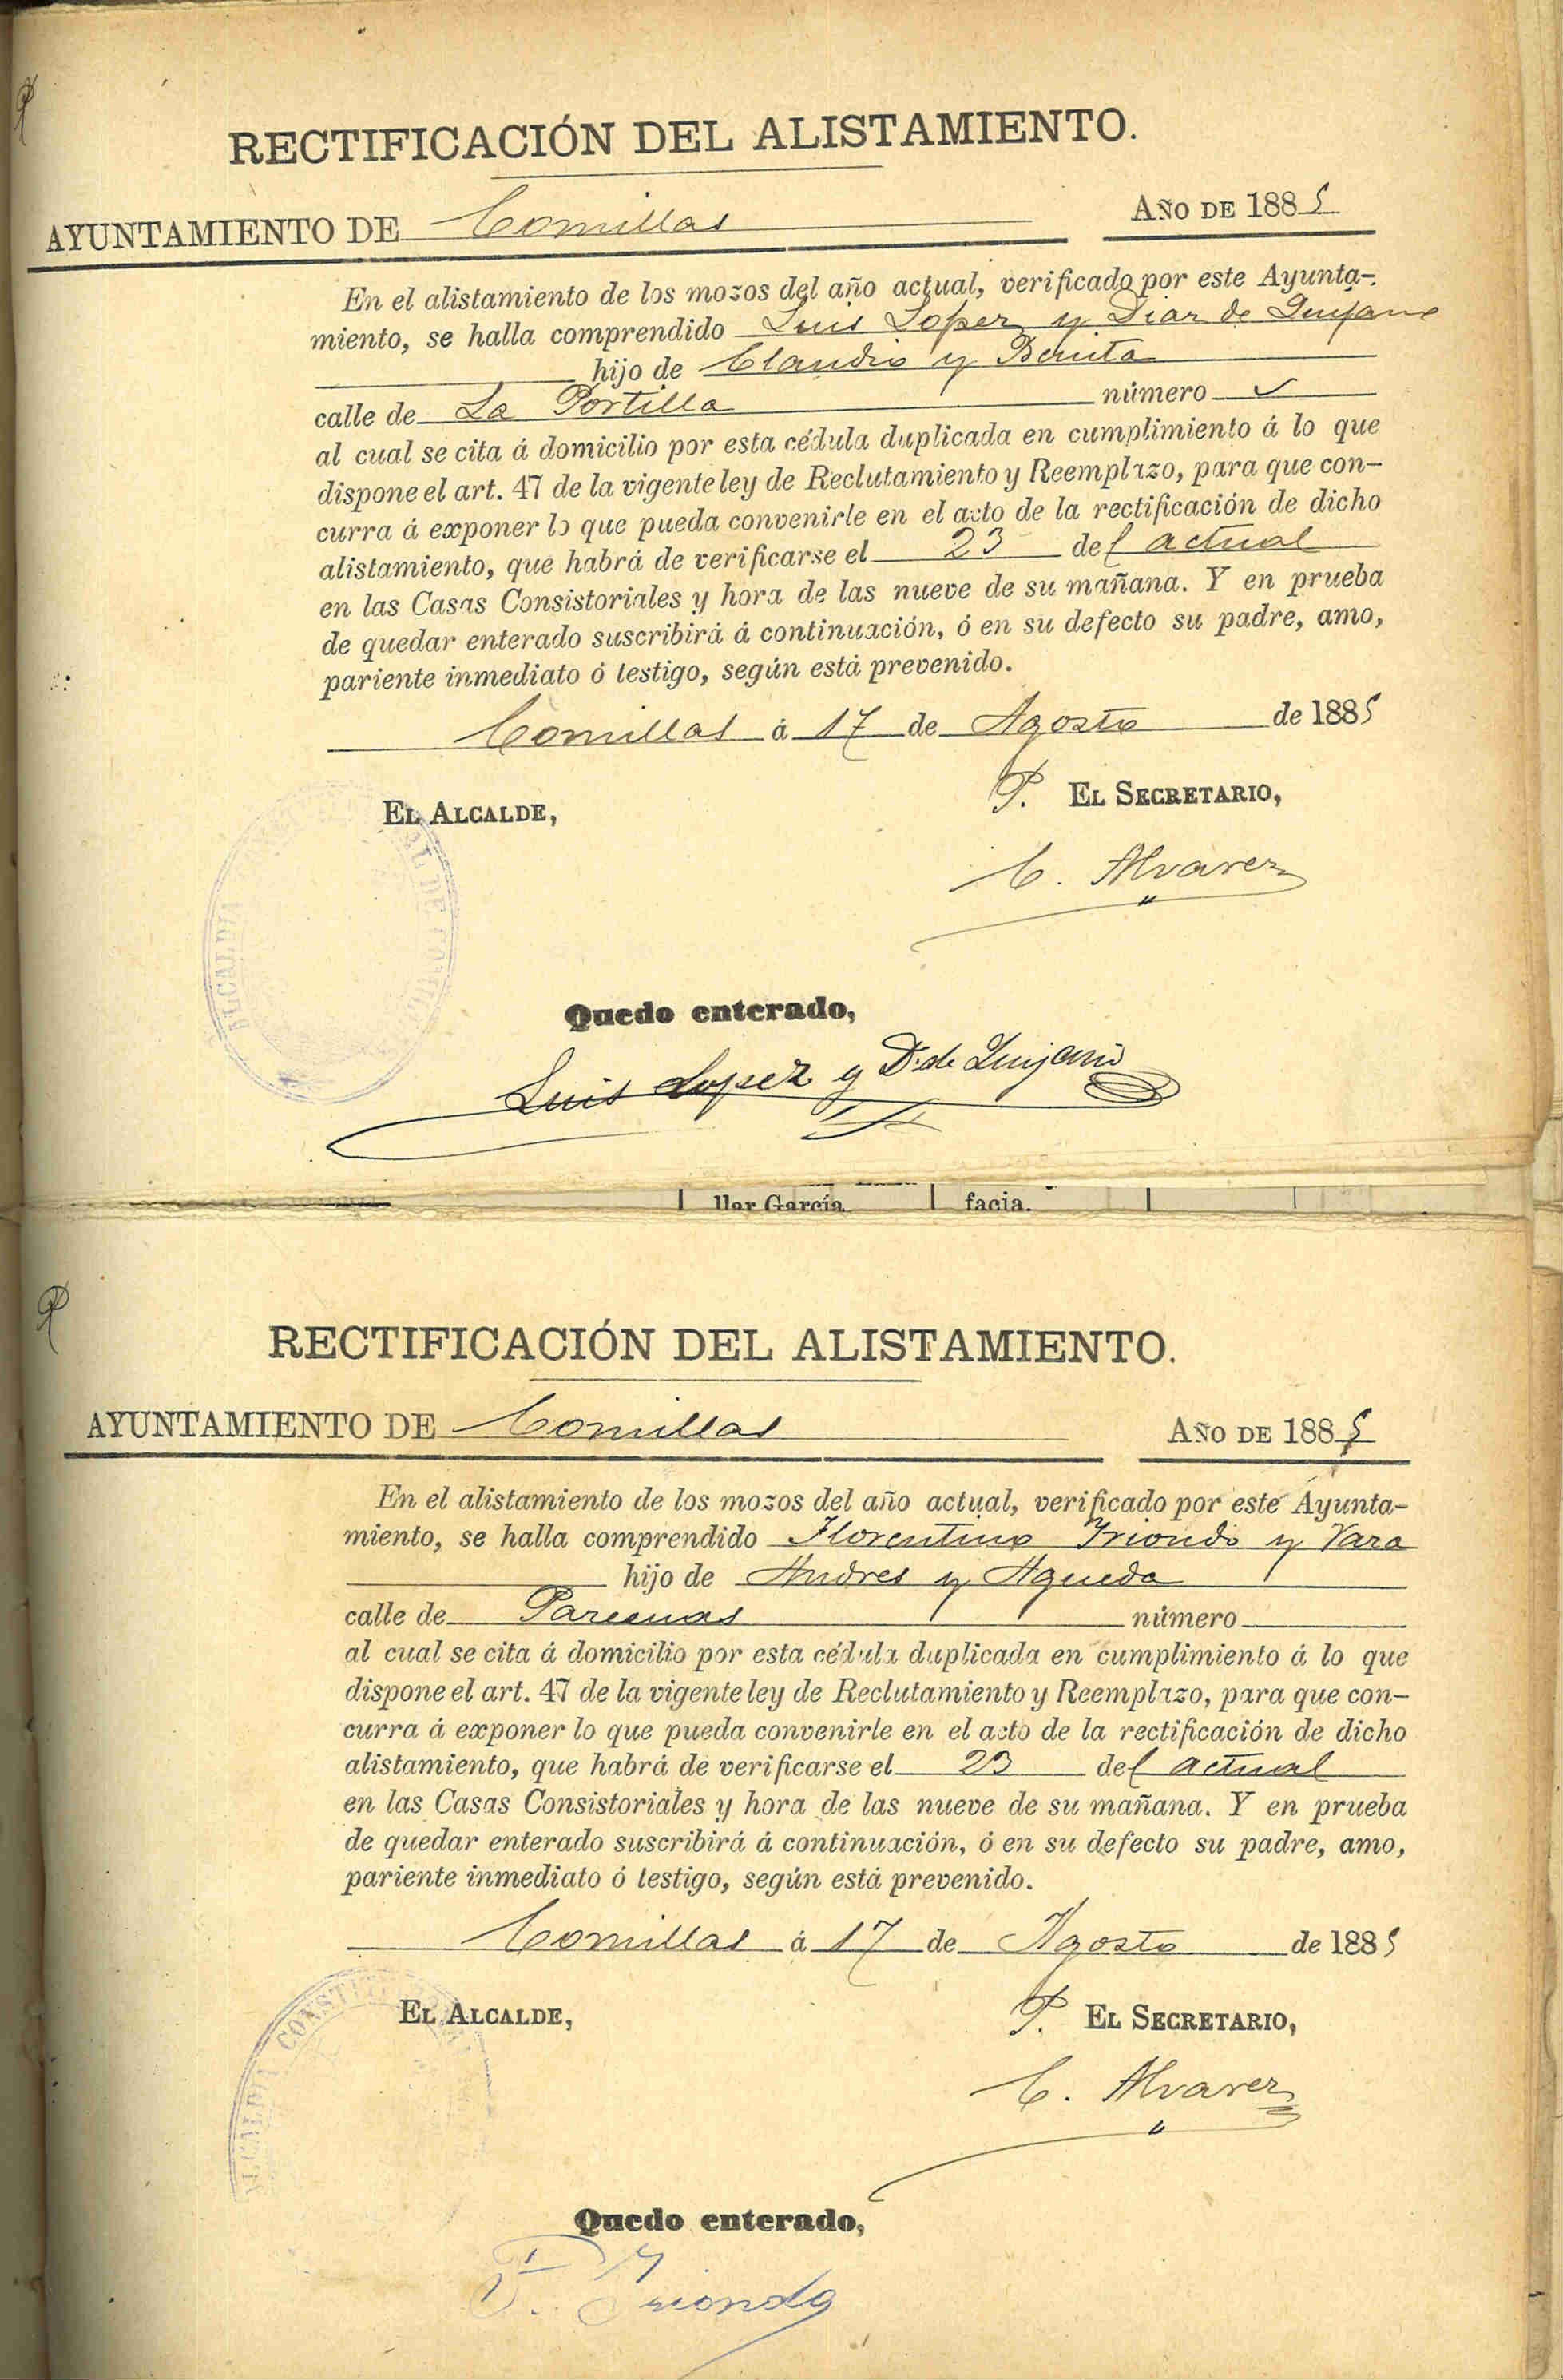 RECTIFICACIÓN DEL ALISTAMIENTO.
AYUNTAMIENTO DE Comillas AÑO DE 1885
En el alistamiento de los mozos del año actual, verificado por este Ayunta-
miento, se halla comprendido Luis Lopez y Diaz de Quijano
hijo de Claudio y Benita
calle de La Portilla número
al cual se cita á domicilio por esta cédula duplicada en cumplimiento á lo que
dispone el art. 47 de la vigente ley de Reclutamiento y Reemplazo, para que con-
curra á exponer lo que pueda convenirle en el acto de la rectificación de dicho
alistamiento, que habrá de verificarse el 23 del actual
en las Casas Consistoriales y hora de las nueve de su mañana. Y en prueba
de quedar enterado suscribirá á continuación, ó en su defecto su padre, amo,
pariente inmediato ó testigo, según está prevenido.
Comillas á 17 de Agosto de 1885
EL ALCALDE, P. EL SECRETARIO,
C. Alvarez
Quedo enterado,
Luis Lopez y D. de Quijano
llar García facia.
RECTIFICACIÓN DEL ALISTAMIENTO.
AYUNTAMIENTO DE Comillas AÑO DE 1885
En el alistamiento de los mozos del año actual, verificado por este Ayunta-
miento, se halla comprendido Florentino Yriondo y Vara
hijo de Andres y Agueda
calle de número
al cual se cita á domicilio por esta cédula duplicada en cumplimiento á lo que
dispone el art. 47 de la vigente ley de Reclutamiento y Reemplazo, para que con-
curra á exponer lo que pueda convenirle en el acto de la rectificación de dicho
alistamiento, que habrá de verificarse el 23 del actual
en las Casas Consistoriales y hora de las nueve de su mañana. Y en prueba
de quedar enterado suscribirá á continuación, ó en su defecto su padre, amo,
pariente inmediato ó testigo, según está prevenido.
Comillas á 17 de Agosto de 1885
EL ALCALDE, P. EL SECRETARIO,
C. Alvarez
Quedo enterado,
F. Yriondo